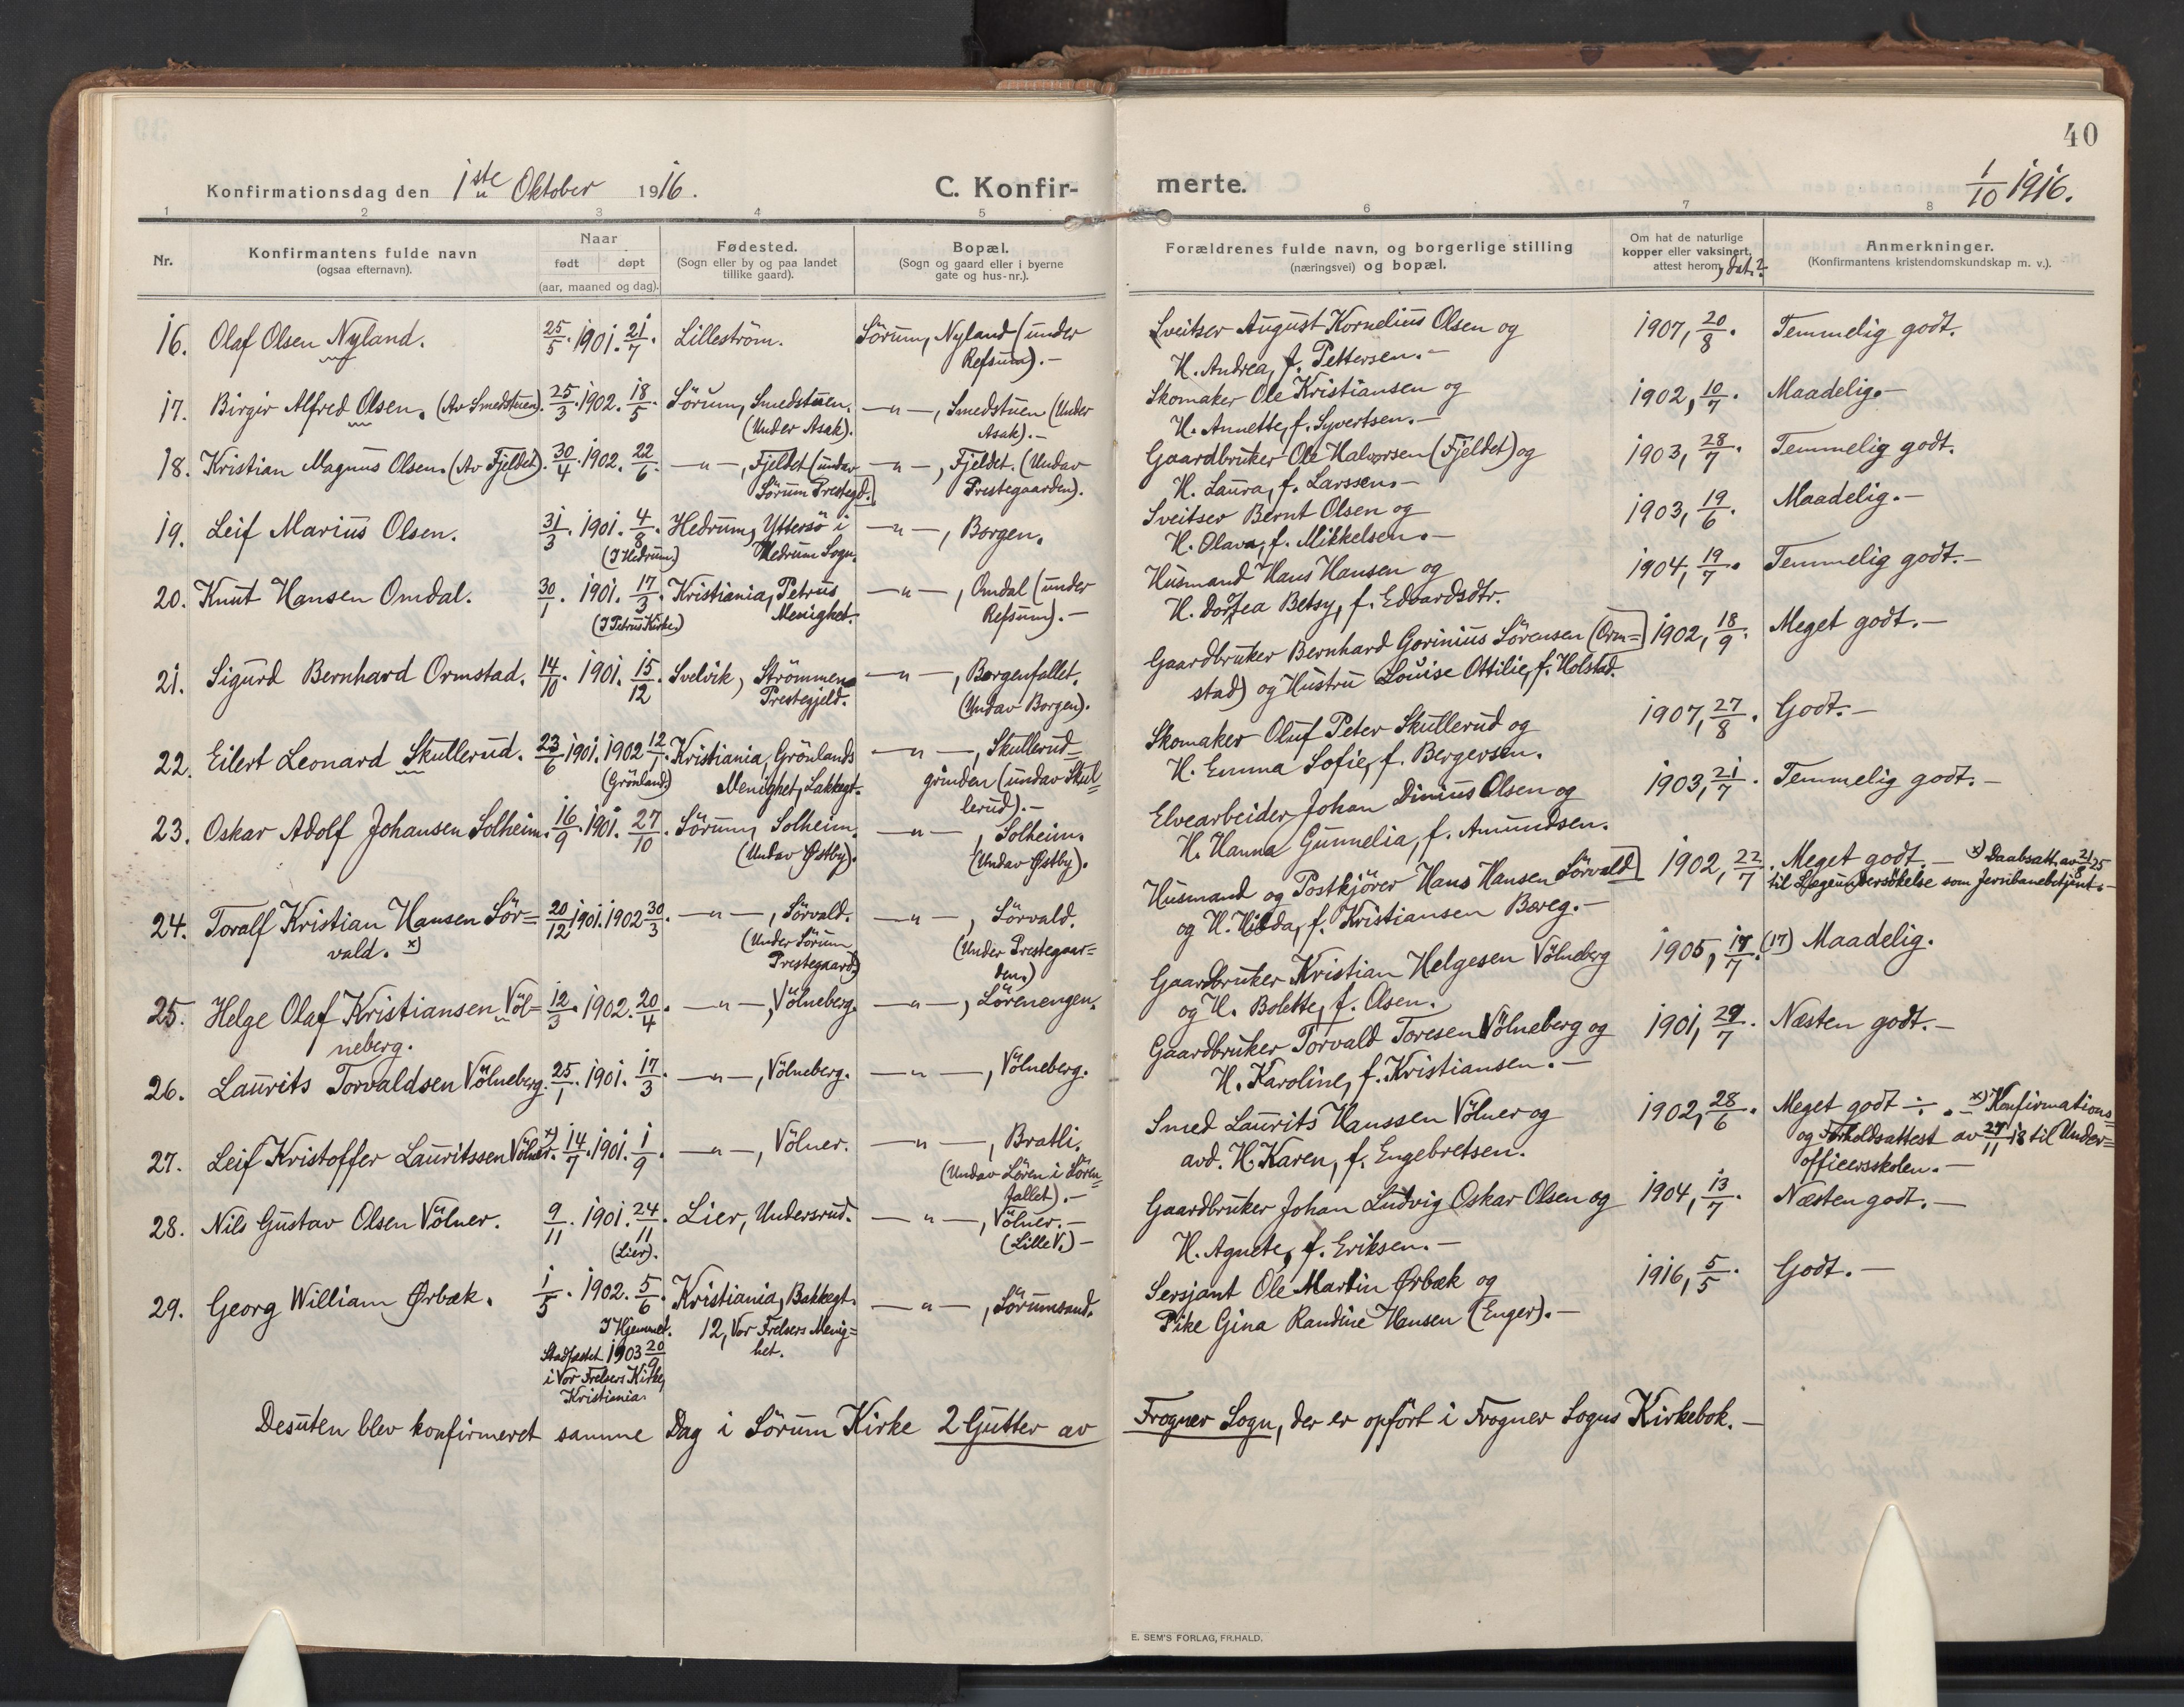 40
Konfirmationsdag den 1ste Oktober 1916.
C. Konfir-
merte.
1/10 1916.
1 2 3 4 5 6 7 8
Nr.
Konfirmantens fulde navn
(ogsaa efternavn).
Naar
født døpt
(aar, maaned og dag).
Fødested.
(Sogn eller by og paa landet
tillike gaard).
Bopæl.
(Sogn og gaard eller i byerne
gate og hus-nr.).
Forældrenes fulde navn, og borgerlige stilling
(næringsvei) og bopæl.
Om hat de naturlige
kopper eller vaksinert,
attest herom, dat.?
Anmerkninger.
(Konfirmantens kristendomskundskap m. v.).
16. Olaf Olsen Nyland. 25/5. 1901. 21/7. Lilleström. Sörum, Nyland (under
Refsum).-
Sveitser August Kornelius Olsen og 1907, 20/8. Temmelig godt.
H. Andrea, f. Pettersen.-
17. Birgir Alfred Olsen. (Av Smedstuen). 25/3. 1902. 18/5. Sörum, Smedstuen. -"-, Smedstuen (Under
(Under Asak). Asak).-
Skomaker Ole Kristiansen og 1902, 10/7. Maadelig.-
H. Annette, f. Syvertsen.-
18. Kristian Magnus Olsen. (Av Fjeldet). 30/4. 1902. 22/6. -"-, Fjeldet (undav -"-, Fjeldet. (Undav
Sörum Prestegd.) Prestegaarden).
Gaardbruker Ole Halvorsen (Fjeldet) og 1903, 28/7. Temmelig godt.
H. Laura, f. Larssen.-
19. Leif Marius Olsen. 31/3. 1901. 4/8. Hedrum, Yttersö i -"-, Borgen.
(I Hedrum) Hedrum Sogn.
Sveitser Bernt Olsen og 1903, 19/6. Maadelig.-
H. Olava, f. Mikkelsen.-
20. Knut Hansen Omdal. 30/1. 1901. 17/3. Kristiania, Petrus -"-, Omdal (under
(I Petrus Kirke.) Menighet. Refsum).-
Husmand Hans Hansen og 1904, 19/7. Temmelig godt.-
H. Dortea Betsy, f. Edvardsdtr.
21. Sigurd Bernhard Ormstad. 14/10. 1901. 15/12. Svelvik, Strömmens -"-, Borgenfallet.
Prestegjeld. (Undav Borgen).
Gaardbruker Bernhard Gorinius Sörensen (Orm= 1902, 18/9. Meget godt.-
stad) og Hustru Louise Ottilie, f. Holstad.
22. Eilert Leonard Skullerud. 23/6 1901. 1902 12/1. Kristiania, Grönlands -"-, Skullerud=
(Grönland) Menighet, Lakkegt. grinden (undav Skul=
lerud).-
Skomaker Oluf Peter Skullerud og 1907, 27/8. Godt.-
H. Emma Sofie, f. Bergersen.
23. Oskar Adolf Johansen Solheim. 16/9. 1901. 27/10. Sörum, Solheim. -"-, Solheim.
(Undav Østby). (Undav Østby).
Elvearbeider Johan Dinius Olsen og 1903, 21/7. Temmelig godt.-
H. Hanna Gunnelia, f. Amundsen.
24. Toralf Kristian Hansen Sör= 20/12 1901. 1902 30/3. -"-, Sörvald. -"-, Sörvald.
vald. x) (Under Sörum (Under Prestegaar=
Prestegaard) den.)
Husmand og Postkjörer Hans Hansen Sörvald 1902, 22/7. Meget godt.- x) Daabsatt. av 21/8 25
og H. Hilda, f. Kristiansen Bereg.- til Lægeundersökelse som Jernbanebetjent.-
25. Helge Olaf Kristiansen Völ= 12/3. 1902. 20/4. -"-, Völneberg. -"-, Lörenengen.
neberg.
Gaardbruker Kristian Helgesen Völneberg 1905, 17/7. (17) Maadelig.
og H. Bolette, f. Olsen.
26. Laurits Torvaldsen Völneberg. 25/1. 1901. 17/3. -"-, Völneberg. -"-, Völneberg.
Gaardbruker Torvald Toresen Völneberg og 1901, 29/7. Næsten godt.-
H. Karoline, f. Kristiansen.-
27. Leif Kristoffer Lauritssen Völner. x) 14/7. 1901. 1/9. -"-, Völner. -"-, Bratli.
(Undav Lören i Lören=
fallet).-
Smed Laurits Hanssen Völner og 1902, 28/6. Meget godt ÷.- x) Konfirmations=
avd. H. Karen, f. Engebretsen. og Forholdsattest av 27/11 18 til Under=
officersskolen.-
28. Nils Gustav Olsen Völner. 9/11. 1901. 24/11. Lier, Undersrud. -"-, Völner.-
(Lier). (Lille V.)-
Gaardbruker Johan Ludvig Oskar Olsen og 1904, 13/7. Næsten godt.-
H. Agnete, f. Eriksen.-
29. Georg William Ørbæk. 1/5. 1902. 5/6. Kristiania, Bakkegt. -"-, Sörumsand.
I Hjemmet. 12, Vor Frelsers Menig=
Stadfæstet 1903 20/9 het.
i Vor Frelsers Kirke,
Kristiania.
Sersjant Ole Martin Ørbæk og 1916, 5/5. Godt.-
Pike Gina Randine Hansen (Enger).-
Desuten blev konfirmeret samme Dag i Sörum Kirke 2 Gutter av Frogner Sogn, der er opfört i Frogner Sogns Kirkebok.-
E. SEM'S FORLAG, FR.HALD.